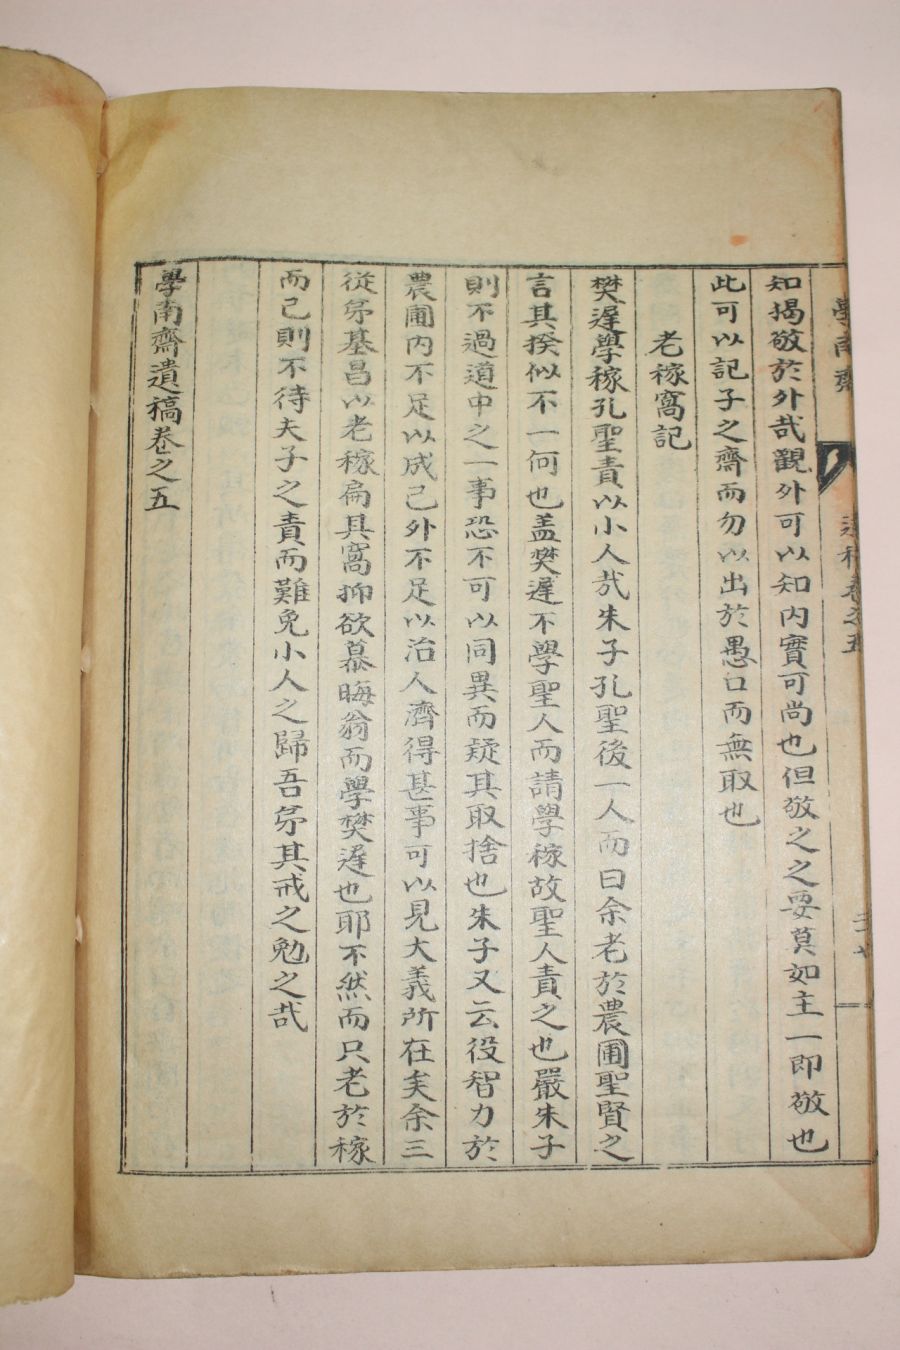 學南齋 遺稿卷之五
知揭敬於外哉觀外可以知內實可尚也但敬之之要莫如主一即敬也
此可以記子之齋而勿以出於愚口而無取也
老稼窩記
樊遲學稼孔聖責以小人㢤朱子孔聖後一人而曰余老於農圃聖賢之
言其揆似不一何也盖樊遲不學聖人而請學稼故聖人責之也嚴朱子
則不過道中之一事恐不可以同異而疑其取捨也朱子又云役智力於
農圃內不足以成己外不足以治人濟得甚事可以見大義所在矣余三
從弟基昌以老稼扁其窩抑欲慕晦翁而學樊遲也耶不然而只老於稼
而己則不待夫子之責而難免小人之歸吾弟其戒之勉之哉
學南齋遺稿卷之五